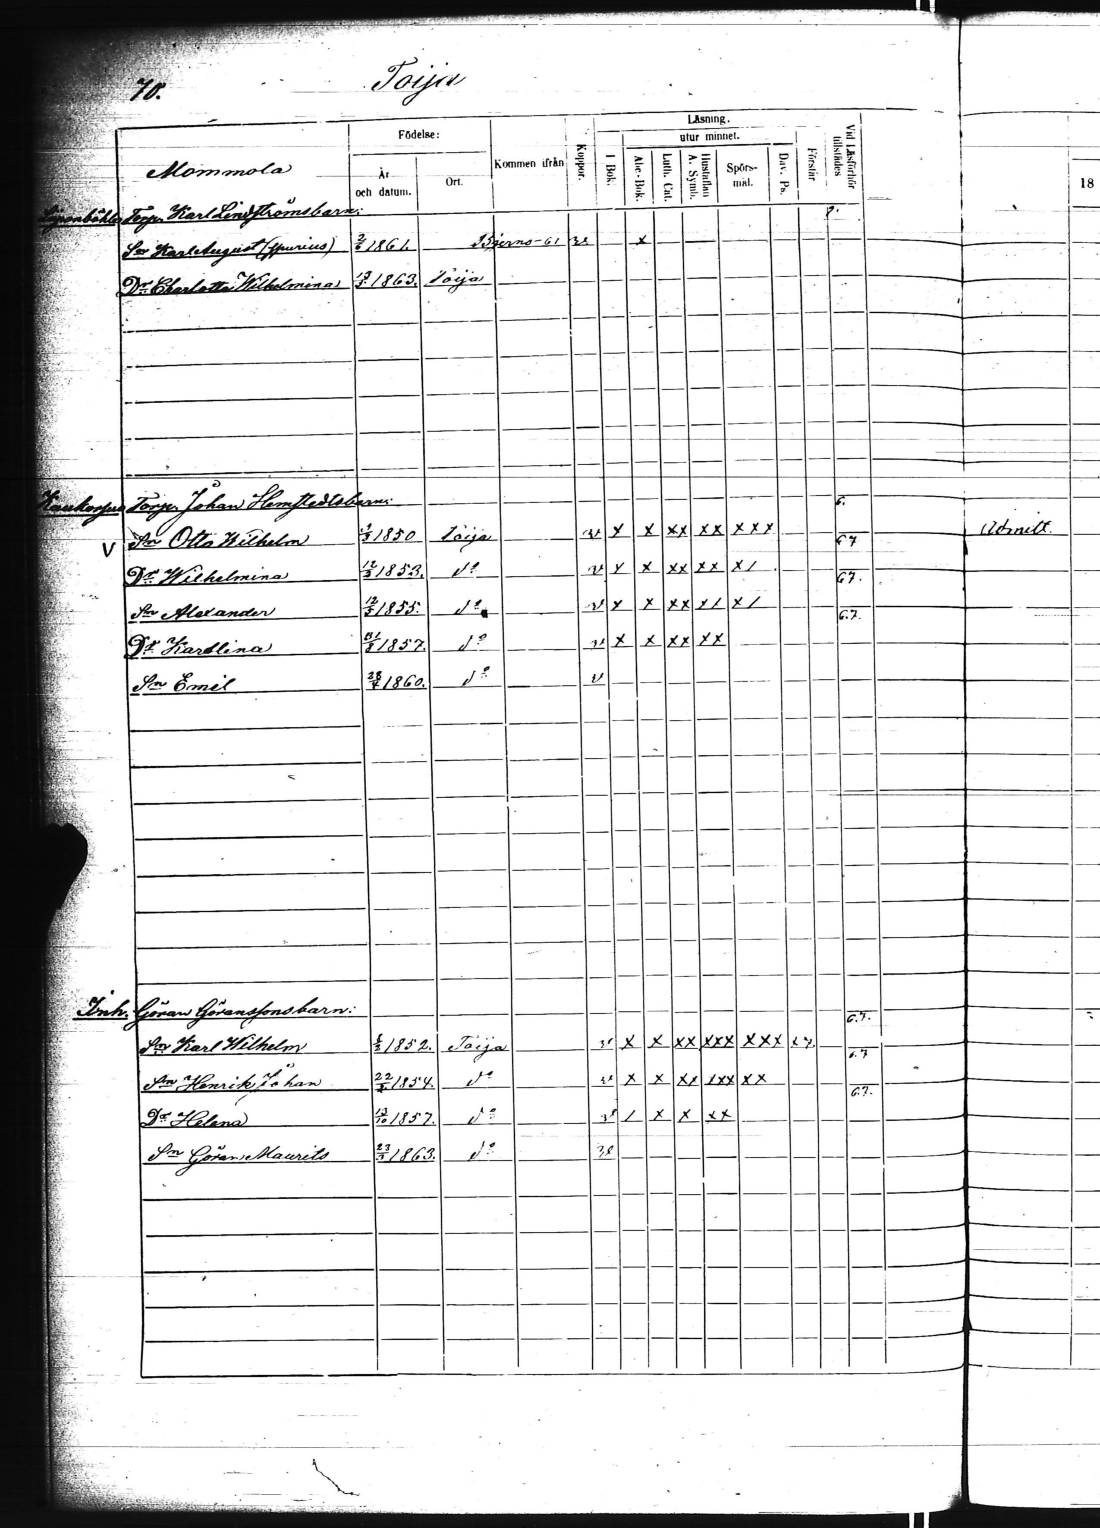 70.
Toija
Mommola
Födelse:
År och datum.
Ort.
Kommen ifrån
Koppor.
Läsning.
I Bok.
utur minnet.
Abc-Bok.
Luth. Cat.
Hustaflan A. Symb.
Spörs-mål.
Dav. Ps.
Förstår
Vid Läsförhör tillstädes
18
Torp. Karl Lindströmsbarn:
Sn Karl August (spurius) 1861. Bjerno-61 x
Dr Charlotta Wilhelmina 1863. Toija
Torp. Johan Hemstedtsbarn: 6.
V Sn Otto Wilhelm 1850 Toija v x x xx xx xxx 67 Admitt.
Dr Wilhelmina 12/3 1853. do v x x xx xx x/ 67.
Sn Alexander 12/5 1855. do v x x xx x/ x/ 67.
Dr Karolina 31/3 1857. do v x x xx xx
Sn Emil 28/4 1860. do v
Inh. Göran Göranssonsbarn: 67.
Sn Karl Wilhelm 1852. Toija x x xx xxx xxx 67
Sn Henrik Johan 22 1854. do x x xx /xx xx 67.
Dr Helena 13/10 1857. do / x x xx
Sn Göran Maurits 23/3 1863. do